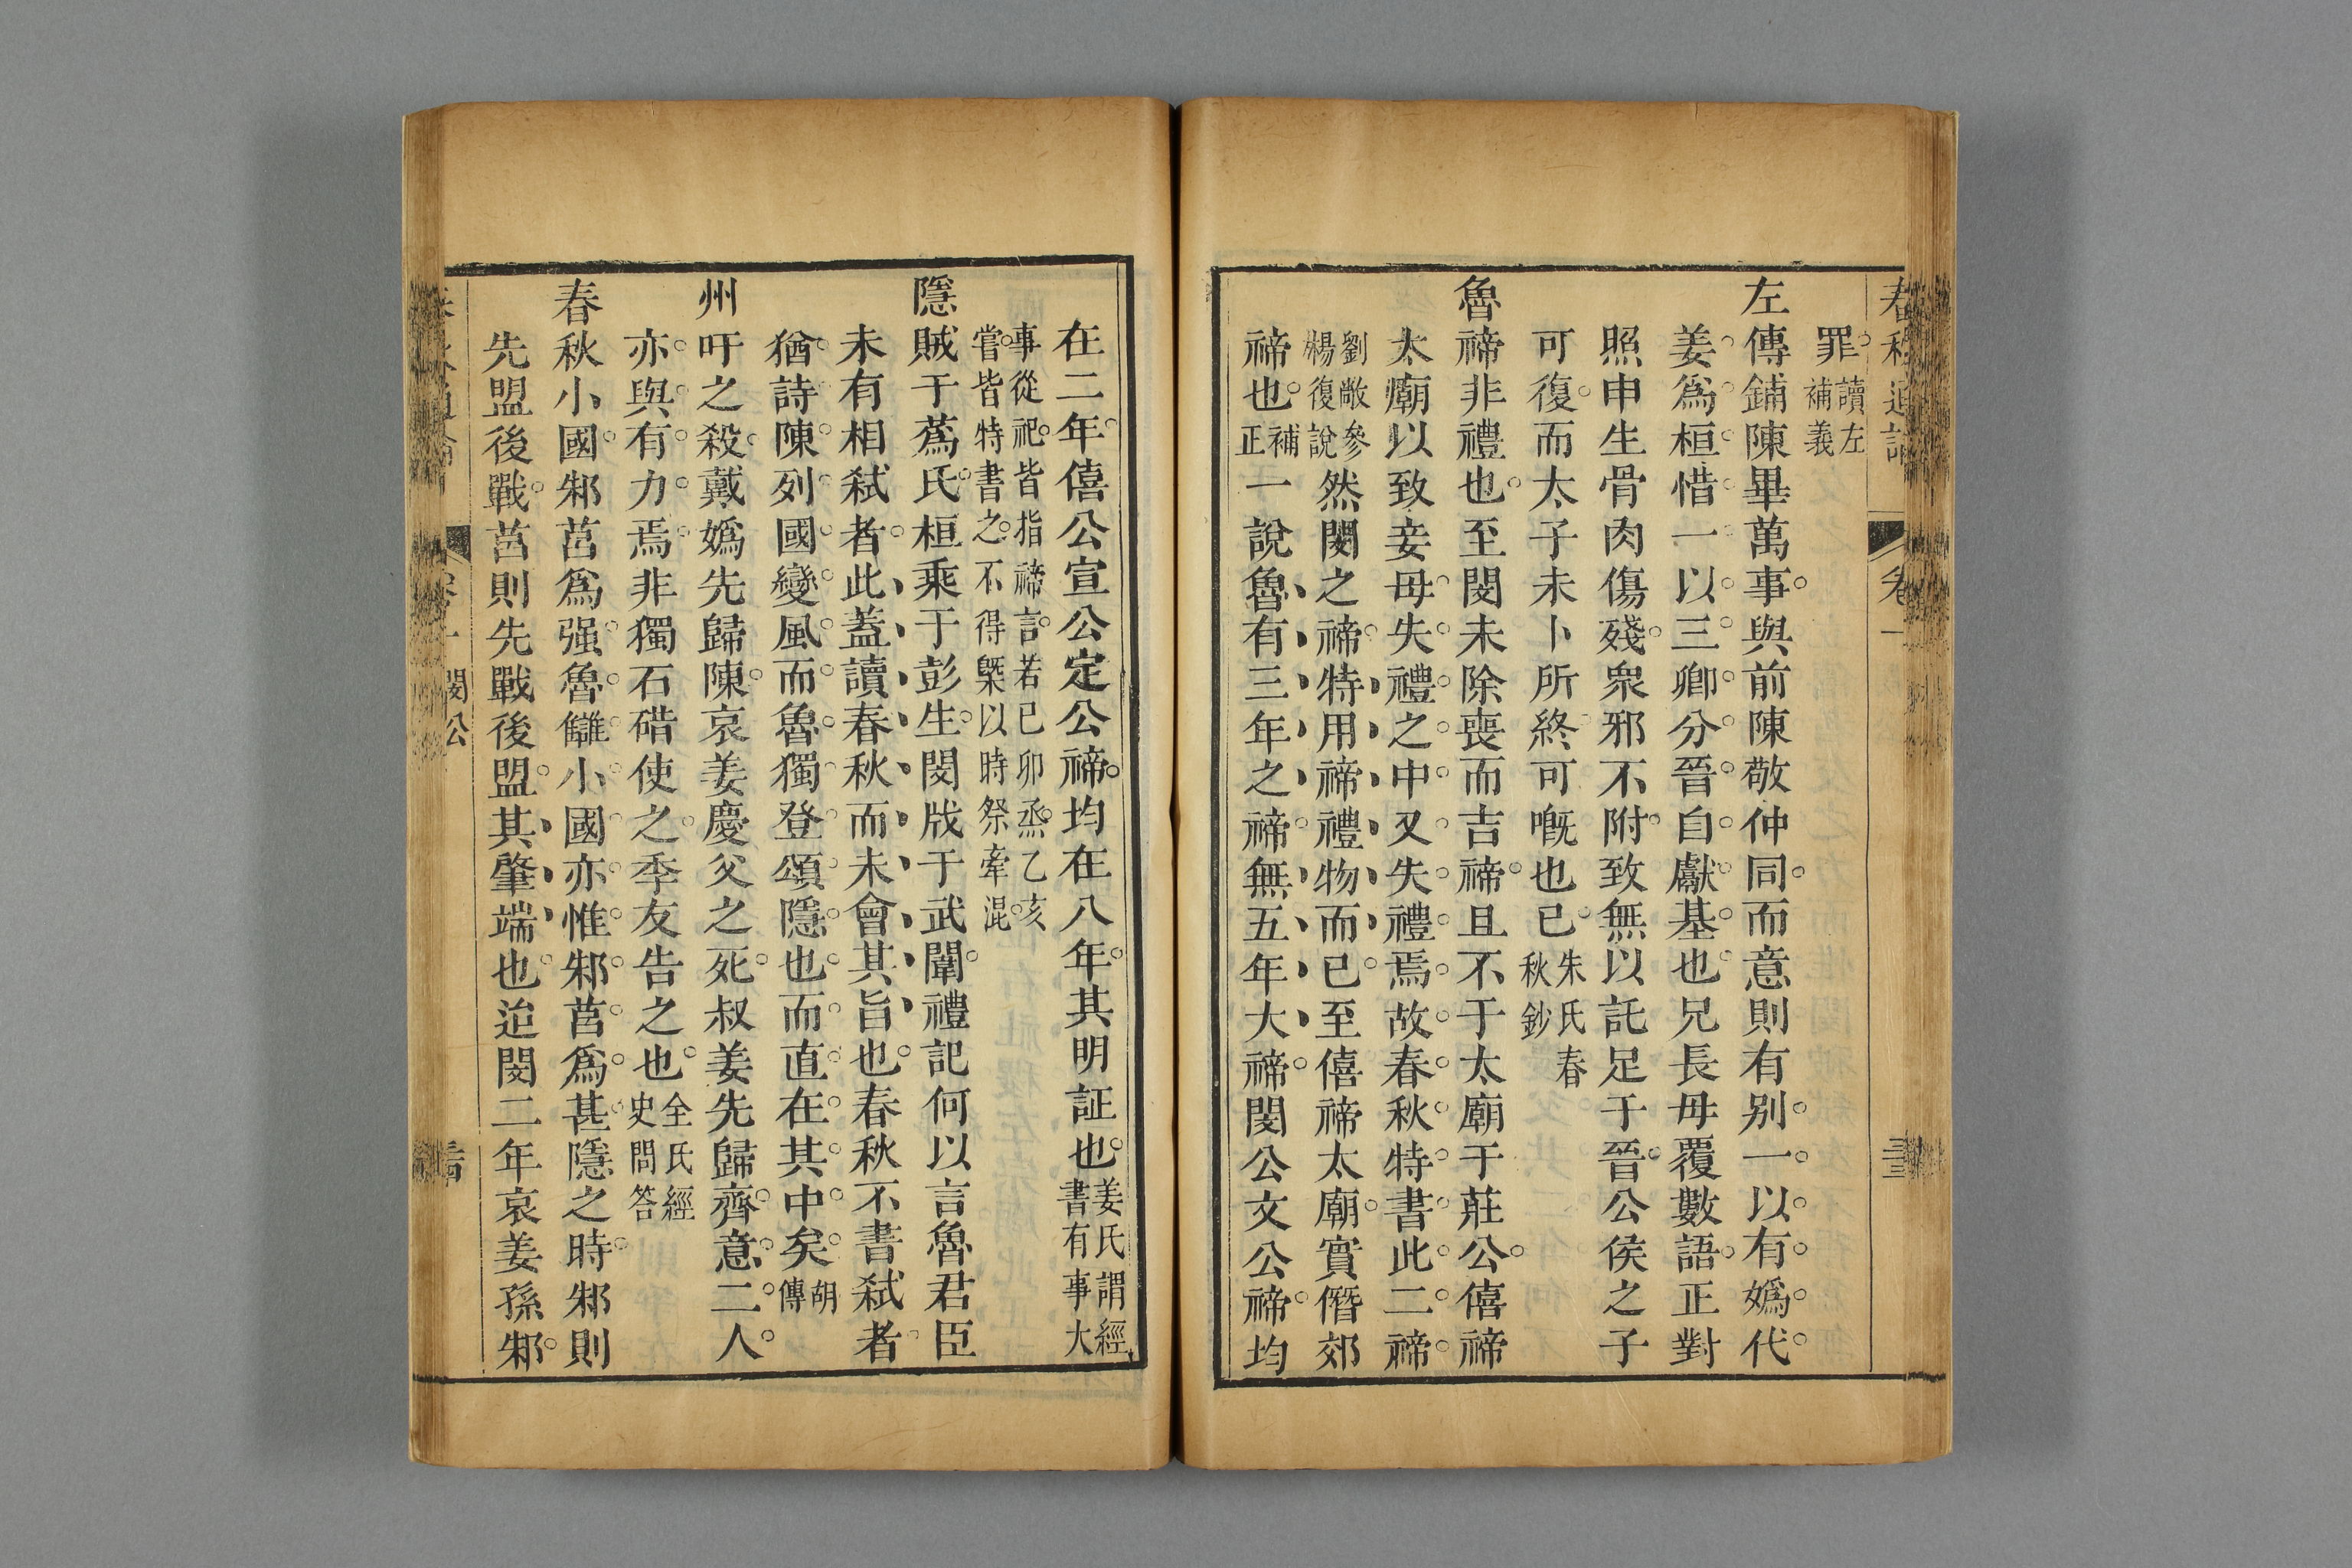 罪讀左補義
左傳鋪陳畢萬事與前陳敬仲同而意則有别一以有嬀代
姜爲桓惜一以三卿分晉自獻基也兄長毋覆數語正對
照申生骨肉傷殘衆邪不附致無以託足于晉公侯之子
可復而太子未卜所終可嘅也已朱氏春秋鈔
魯禘非禮也至閔未除喪而吉禘且不于太廟于莊公僖禘
太廟以致妾母失禮之中又失禮焉故春秋特書此二禘
劉敞參楊復說然閔之禘特用禘禮物而已至僖禘太廟實僭郊
禘也補正一說魯有三年之禘無五年大禘閔公文公禘均
在二年僖公宣公定公禘均在八年其明証也姜氏謂經書有事大
事從祀皆指禘言若己卯烝乙亥嘗皆特書之不得槩以時祭牽混
隱賊于蔿氏桓乘于彭生閔戕于武闈禮記何以言魯君臣
未有相弑者此蓋讀春秋而未會其旨也春秋不書弑者
猶詩陳列國變風而魯獨登頌隱也而直在其中矣胡傳
州吁之殺戴嬀先歸陳哀姜慶父之死叔姜先歸齊意二人
亦與有力焉非獨石碏使之季友告之也全氏經史問答
春秋小國邾莒爲强魯讎小國亦惟邾莒爲甚隱之時邾則
先盟後戰莒則先戰後盟其肇端也迨閔二年哀姜孫邾
閔公